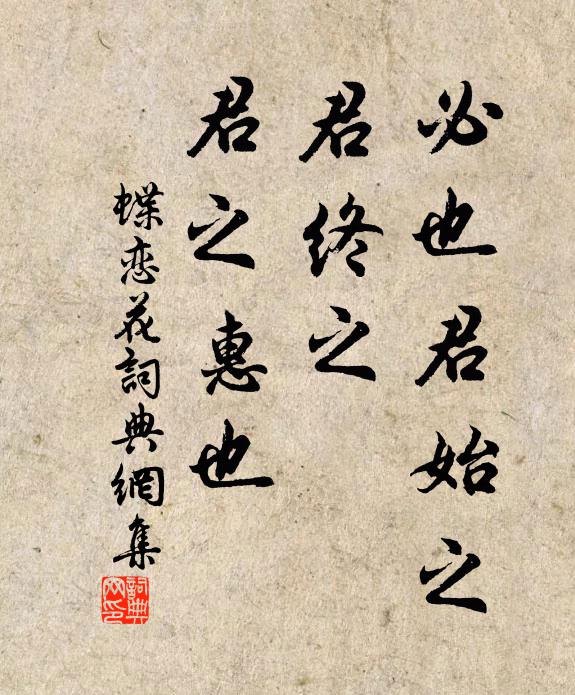 必也君始之
君終之
君之惠也
蝶恋花詞典網集
詞典
网印